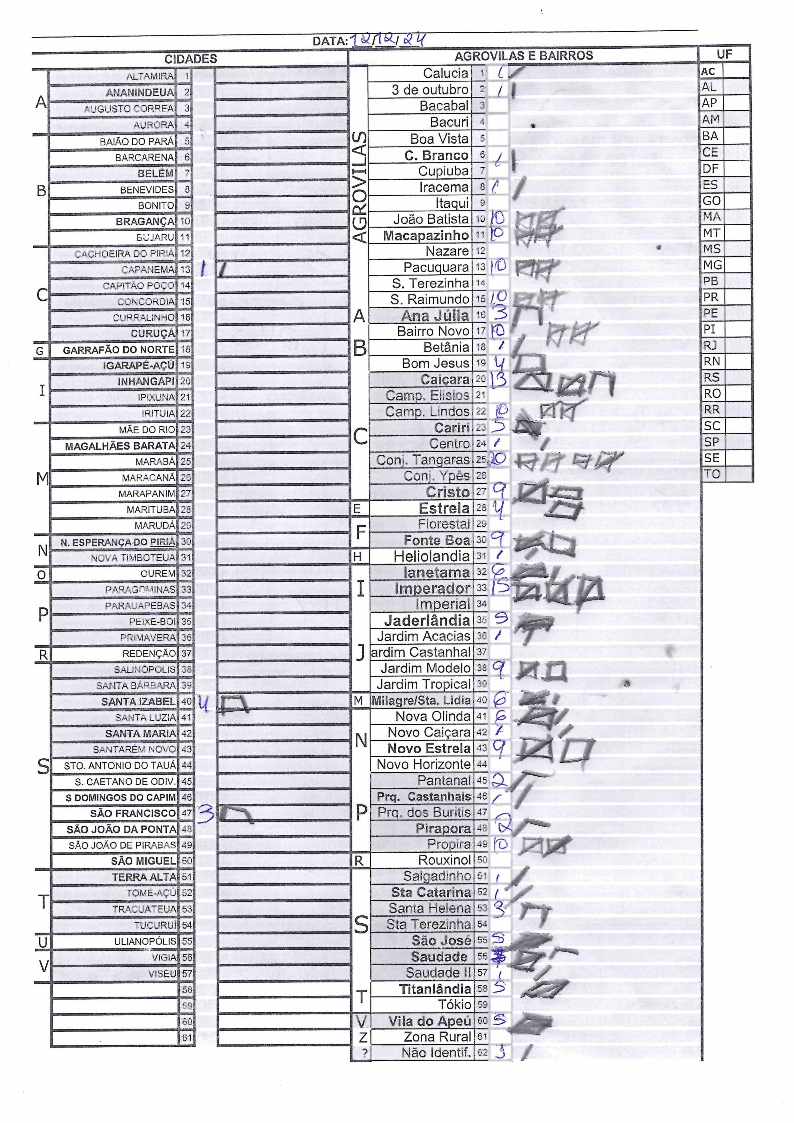 DATA: 12/12/24
CIDADES
A
ALTAMIRA 1
ANANINDEUA 2
AUGUSTO CORREA 3
AURORA 4
B
BAIÃO DO PARÁ 5
BARCARENA 6
BELÉM 7
BENEVIDES 8
BONITO 9
BRAGANÇA 10
BUJARU 11
C
CACHOEIRA DO PIRIA 12
CAPANEMA 13 1
CAPITÃO POÇO 14
CONCORDIA 15
CURRALINHO 16
CURUÇA 17
G GARRAFÃO DO NORTE 18
I
IGARAPÉ-AÇÚ 19
INHANGAPI 20
IPIXUNA 21
IRITUIA 22
M
MÃE DO RIO 23
MAGALHÃES BARATA 24
MARABÁ 25
MARACANÃ 26
MARAPANIM 27
MARITUBA 28
MARUDÁ 29
N
N. ESPERANÇA DO PIRIÁ 30
NOVA TIMBOTEUA 31
O OUREM 32
P
PARAGOMINAS 33
PARAUAPEBAS 34
PEIXE-BOI 35
PRIMAVERA 36
R REDENÇÃO 37
S
SALINÓPOLIS 38
SANTA BÁRBARA 39
SANTA IZABEL 40 4
SANTA LUZIA 41
SANTA MARIA 42
SANTARÉM NOVO 43
STO. ANTONIO DO TAUÁ 44
S. CAETANO DE ODIV. 45
S DOMINGOS DO CAPIM 46
SÃO FRANCISCO 47 3
SÃO JOÃO DA PONTA 48
SÃO JOÃO DE PIRABAS 49
SÃO MIGUEL 50
T
TERRA ALTA 51
TOMÉ-AÇÚ 52
TRACUATEUA 53
TUCURUI 54
U ULIANOPÓLIS 55
V
VIGIA 56
VISEU 57
58
59
60
61
AGROVILAS E BAIRROS
AGROVILAS
Calucia 1 1
3 de outubro 2 1
Bacabal 3
Bacuri 4
Boa Vista 5
C. Branco 6 1
Cupiuba 7
Iracema 8 1
Itaqui 9
João Batista 10 10
Macapazinho 11 10
Nazare 12
Pacuquara 13 10
S. Terezinha 14
S. Raimundo 15 10
A Ana Júlia 16 3
B
Bairro Novo 17 10
Betânia 18 1
Bom Jesus 19 4
C
Caiçara 20 13
Camp. Elisios 21
Camp. Lindos 22 10
Cariri 23 5
Centro 24 1
Conj. Tangaras 25 20
Conj. Ypês 26
Cristo 27 9
E Estrela 28 4
F
Florestal 29
Fonte Boa 30 9
H Heliolandia 31 1
I
Ianetama 32 6
Imperador 33 15
Imperial 34
J
Jaderlândia 35 5
Jardim Acacias 36 1
ardim Castanhal 37
Jardim Modelo 38 9
Jardim Tropical 39
M Milagre/Sta. Lidia 40 6
N
Nova Olinda 41 6
Novo Caiçara 42 1
Novo Estrela 43 9
Novo Horizonte 44
P
Pantanal 45 2
Prq. Castanhais 46 1
Prq. dos Buritis 47
Pirapora 48 2
Propira 49 10
R Rouxinol 50
S
Salgadinho 51 1
Sta Catarina 52 1
Santa Helena 53 3
Sta Terezinha 54
São José 55 5
Saudade 56
Saudade II 57 1
T
Titanlândia 58 5
Tókio 59
V Vila do Apeú 60 5
Z Zona Rural 61
? Não Identif. 62
UF
AC
AL
AP
AM
BA
CE
DF
ES
GO
MA
MT
MS
MG
PB
PR
PE
PI
RJ
RN
RS
RO
RR
SC
SP
SE
TO